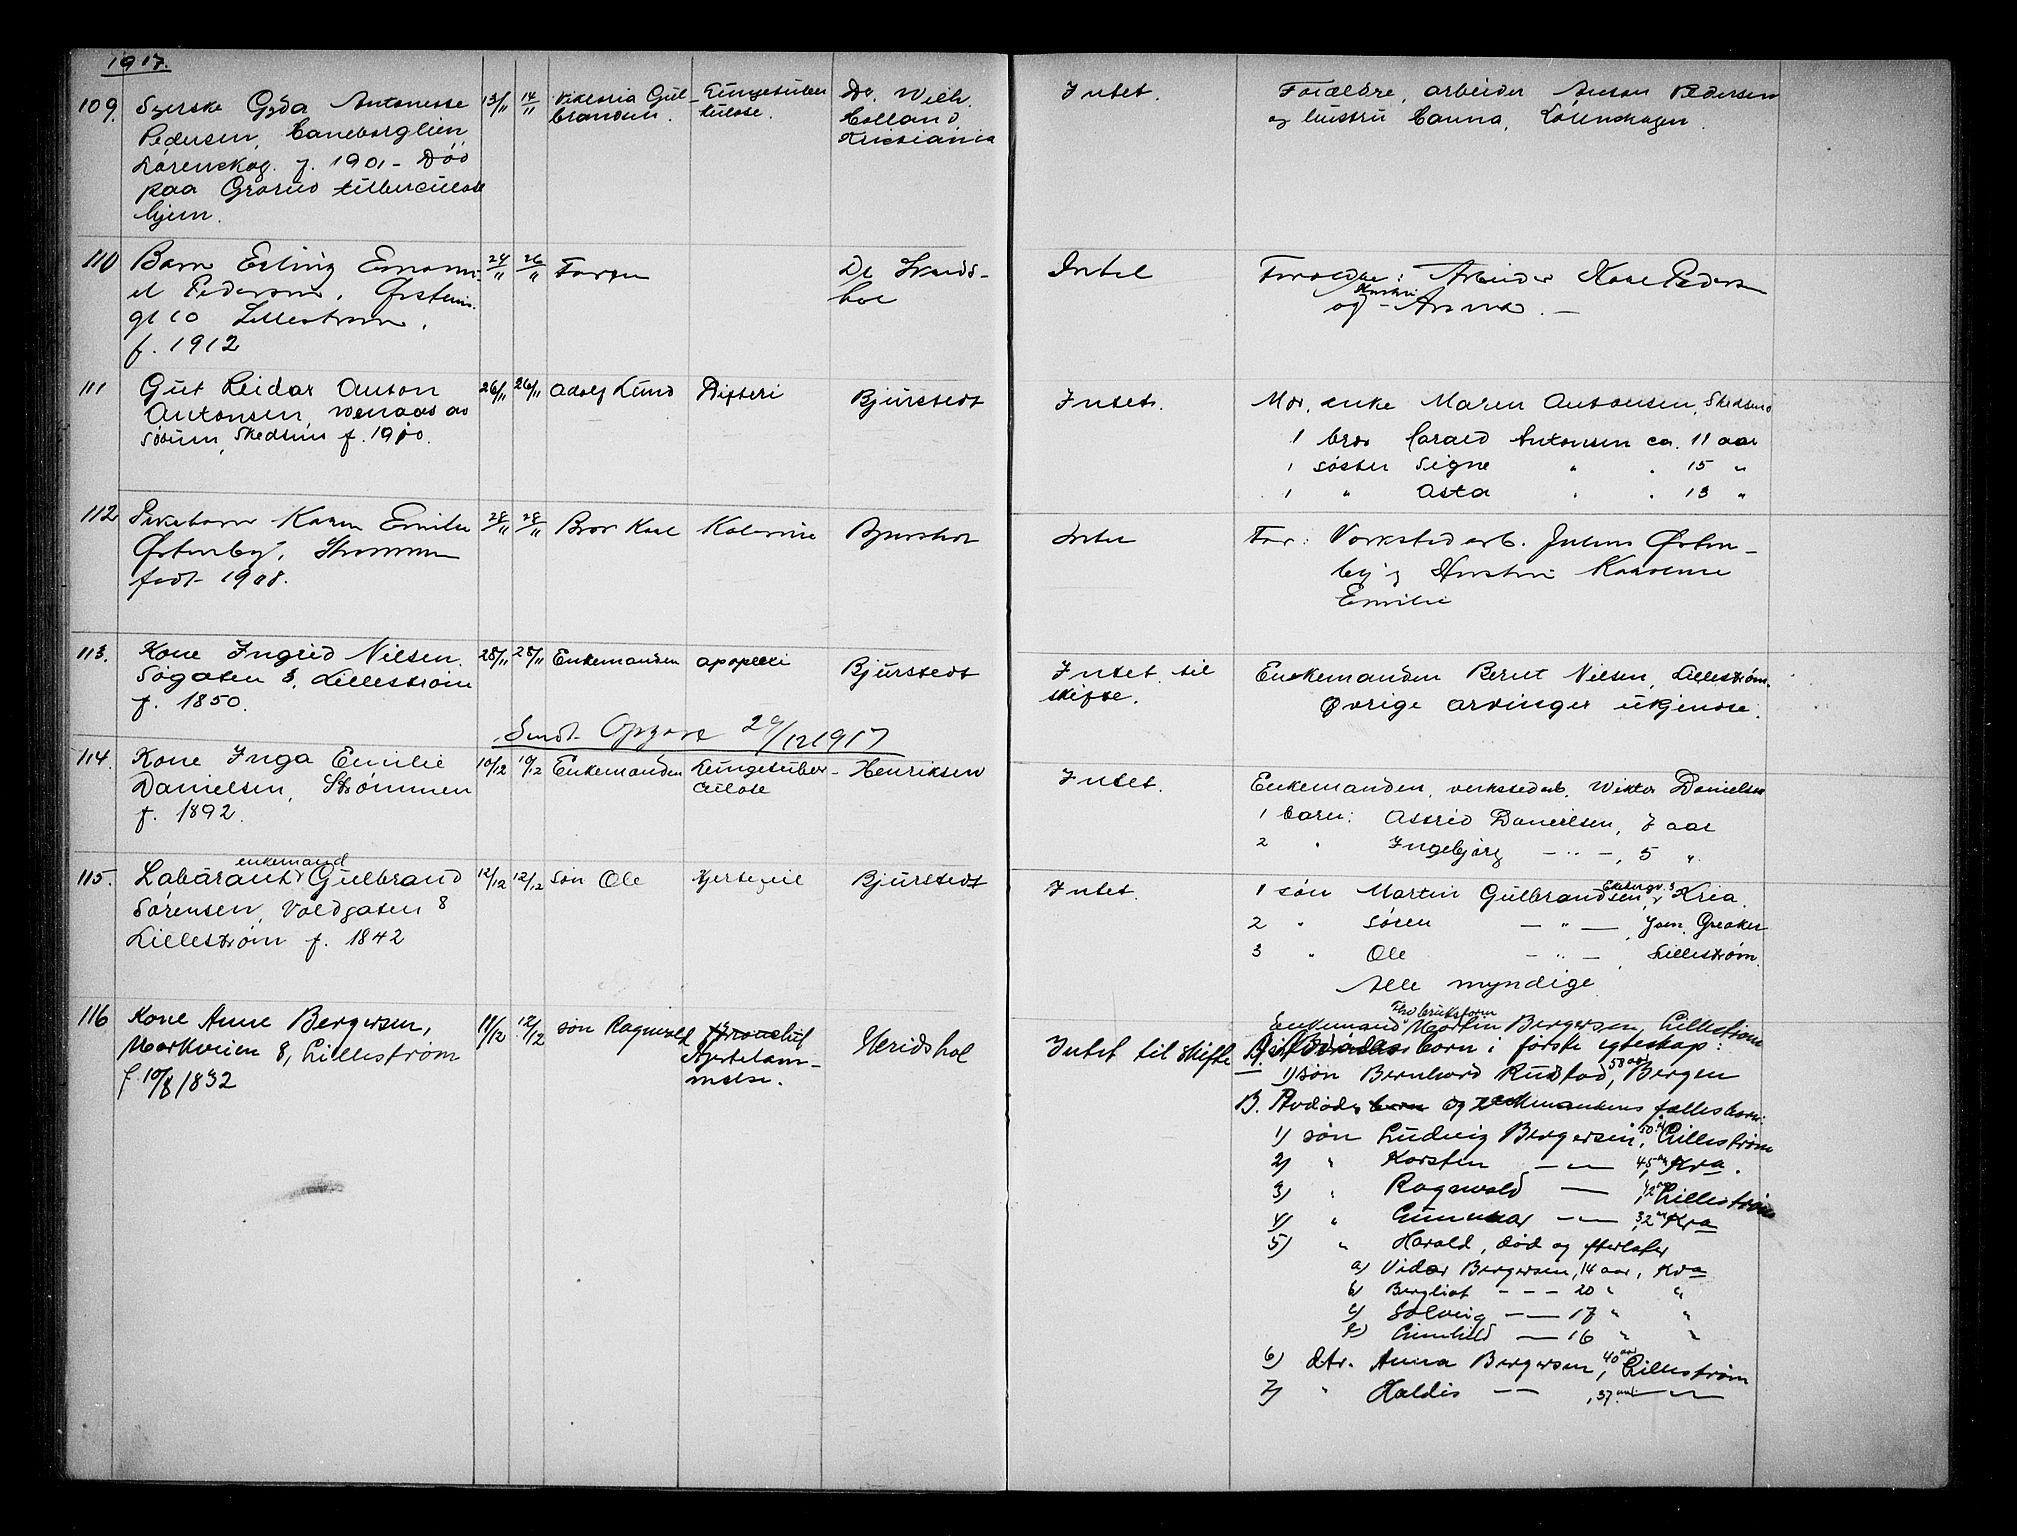 1917.
109. Syerske Gyda Antonette 13/11 14/11 Viktoria Gul- Lungetuber- Dr. Wilh. Intet. Forældre, arbeider Anton Pedersen
Pedersen, Haneborglien brandsen. kulose. Holland og hustru Hanna, Lørenskogen.
Lørenskog. f. 1901 - Død Kristiania
paa Grorud tuberculose
hjem.
110 Barn Erling Emanu- 24/11 26/11 Faren Dr Intet Forældre: Arbeider Pedersen
el Pedersen, hustru
gt 10 Lillestrøm, og - Anna. -
f. 1912
111 Gut Reidar Anton 26/11 26/11 Adolf Lund Difteri Bjurstedt Intet. Mor, enke Maren Antonsen, Skedsmo
Antonsen,
Sørum, Skedsmo f. 1910. 1 bror Harald Antonsen ca. 11 aar
1 søster Signe " . 15 "
1 " Asta " . 13 "
112 Pikebarn Karen Emilie 28/11 28/11 Bror Karl Bjurstedt Intet Far: Verkstedarb. Julius Østen-
Østenby, Strømmen by og Hustru
født 1908. Emilie
113. Kone Ingrid Nilsen. 28/11 28/11 Enkemanden apopleksi Bjurstedt Intet til Enkemanden Bernt Nilsen, Lillestrøm.
Søgaten 8, Lillestrøm skifte. Øvrige arvinger ukjendte.
f. 1850.
Sendt Opgave 20/12 1917
114. Kone Inga Emilie 10/12 10/12 Enkemanden Lungetuber- Henriksen Intet. Enkemanden, verkstedarb. Wiktor Danielsen
Danielsen, Strømmen culose 1 barn: Astrid Danielsen, 7 aar
f. 1892. 2 " Ingebjørg - " - , 5 "
enkemand
115. Gulbrand 12/12 12/12 søn Ole Hjertefeil Bjurstedt Intet. 1 søn Martin Gulbrandsen, Kria.
Sørensen, Voldgaten 8 2 " Søren - " - , Greaker
Lillestrøm f. 1842 3 " Ole - " - , Lillestrøm.
Alle myndige.
116 Kone Anne Bergersen, 11/12 12/12 søn Ragnvald Intet til skifte Enkemand Martin Bergersen, Lillestrøm
Markveien 8, Lillestrøm A. barn i første egteskap:
f. 10/8 1832 1) søn Bernhard Rustad, 58 aar, Bergen
B. Avdødes og enkemandens fællesbarn:
1) søn Ludvig Bergersen, 50 aar, Lillestrøm
2) " Karsten - " - 45 aar, Kra.
3) " Ragnvald - , 42 aar, Lillestrøm
4) " Gunnar - - , 32 aar, Kra
5) " Harald, død og efterlater
a) Vidar Bergersen, 14 aar, Kra
b) Bergliot - - - 20 " "
c) Solveig - - 17 " "
d) Gunhild - 16 " "
6) dtr. Anna Bergersen, 40 aar, Lillestrøm
7) " Haldis - - , 37 aar - " -